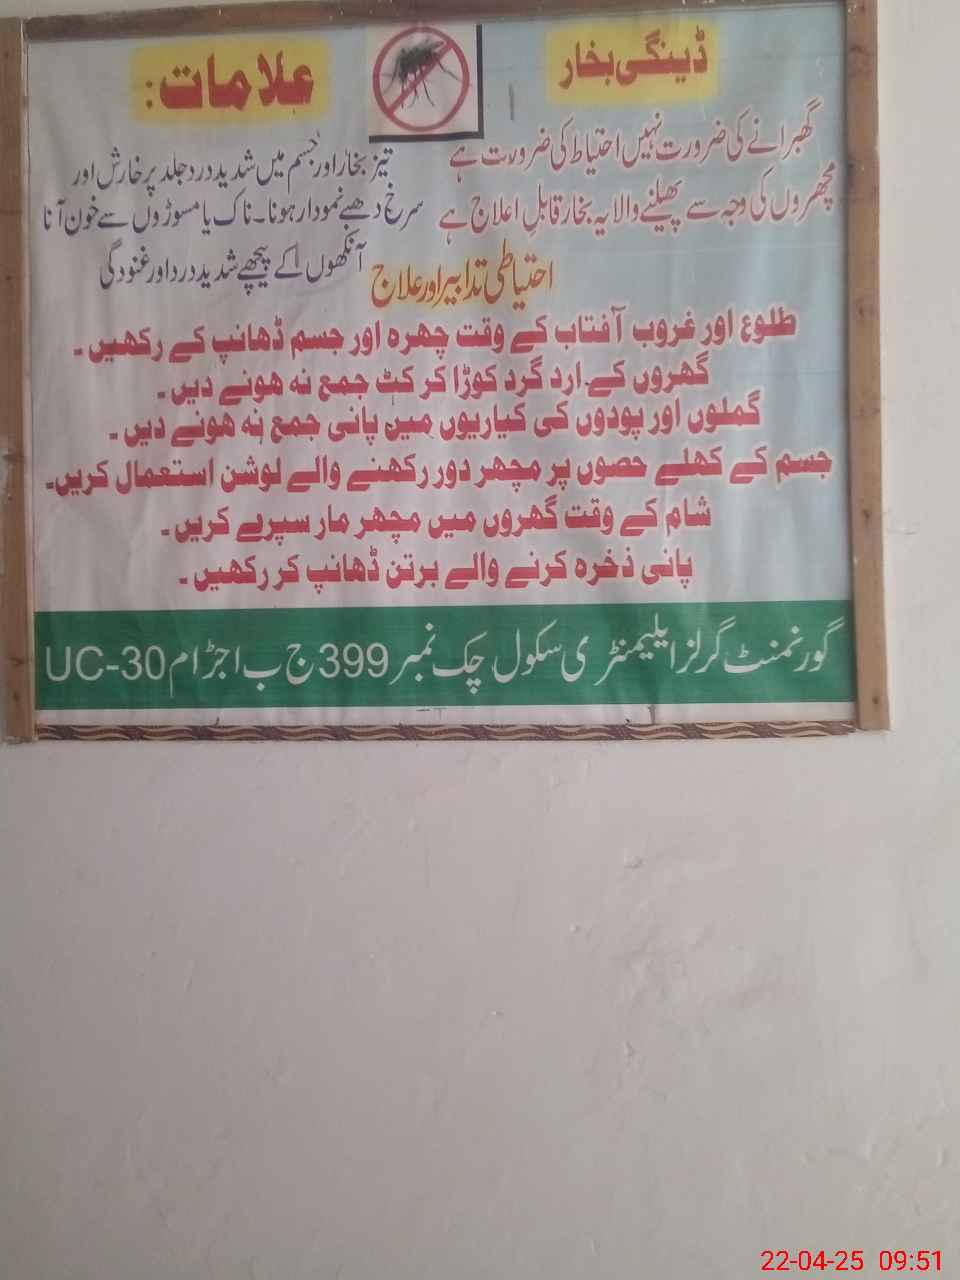 ڈینگی بخار
گھبرانے کی ضرورت نہیں احتیاط کی ضرورت ہے
مچھروں کی وجہ سے پھیلنے والا یہ بخار قابلِ علاج ہے
علامات:
تیز بخار اور جسم میں شدید درد جلد پر خارش اور
سرخ دھبے نمودار ہونا۔ ناک یا مسوڑوں سے خون آنا
آنکھوں کے پیچھے شدید درد اور غنودگی
احتیاطی تدابیر اور علاج
طلوع اور غروب آفتاب کے وقت چہرہ اور جسم ڈھانپ کے رکھیں۔
گھروں کے ارد گرد کوڑا کرکٹ جمع نہ ہونے دیں۔
گملوں اور پودوں کی کیاریوں میں پانی جمع نہ ہونے دیں۔
جسم کے کھلے حصوں پر مچھر دور رکھنے والے لوشن استعمال کریں۔
شام کے وقت گھروں میں مچھر مار سپرے کریں۔
پانی ذخرہ کرنے والے برتن ڈھانپ کر رکھیں۔
گورنمنٹ گرلز ایلیمنٹری سکول چک نمبر 399 ج ب اجڑام UC-30
22-04-25 09:51